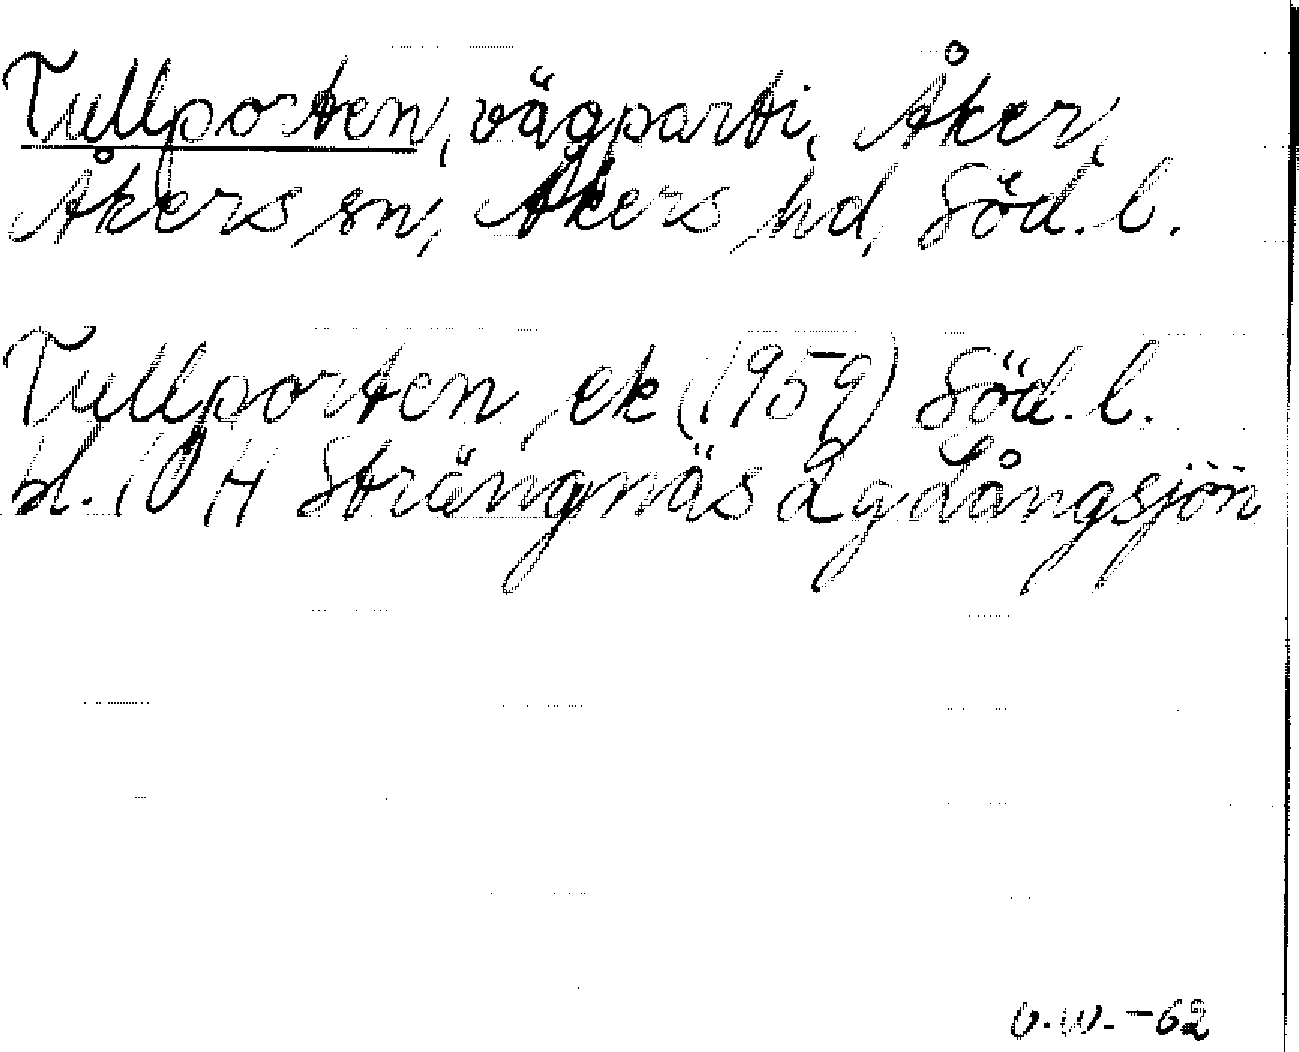 Tullporten, vägparti, Åker,
Åkers sn, Åkers hd, Söd. l.
Tullporten, ek (1959) Söd. l.
bl. 10 H Strängnäs 2 g Långsjön
V.W. -62